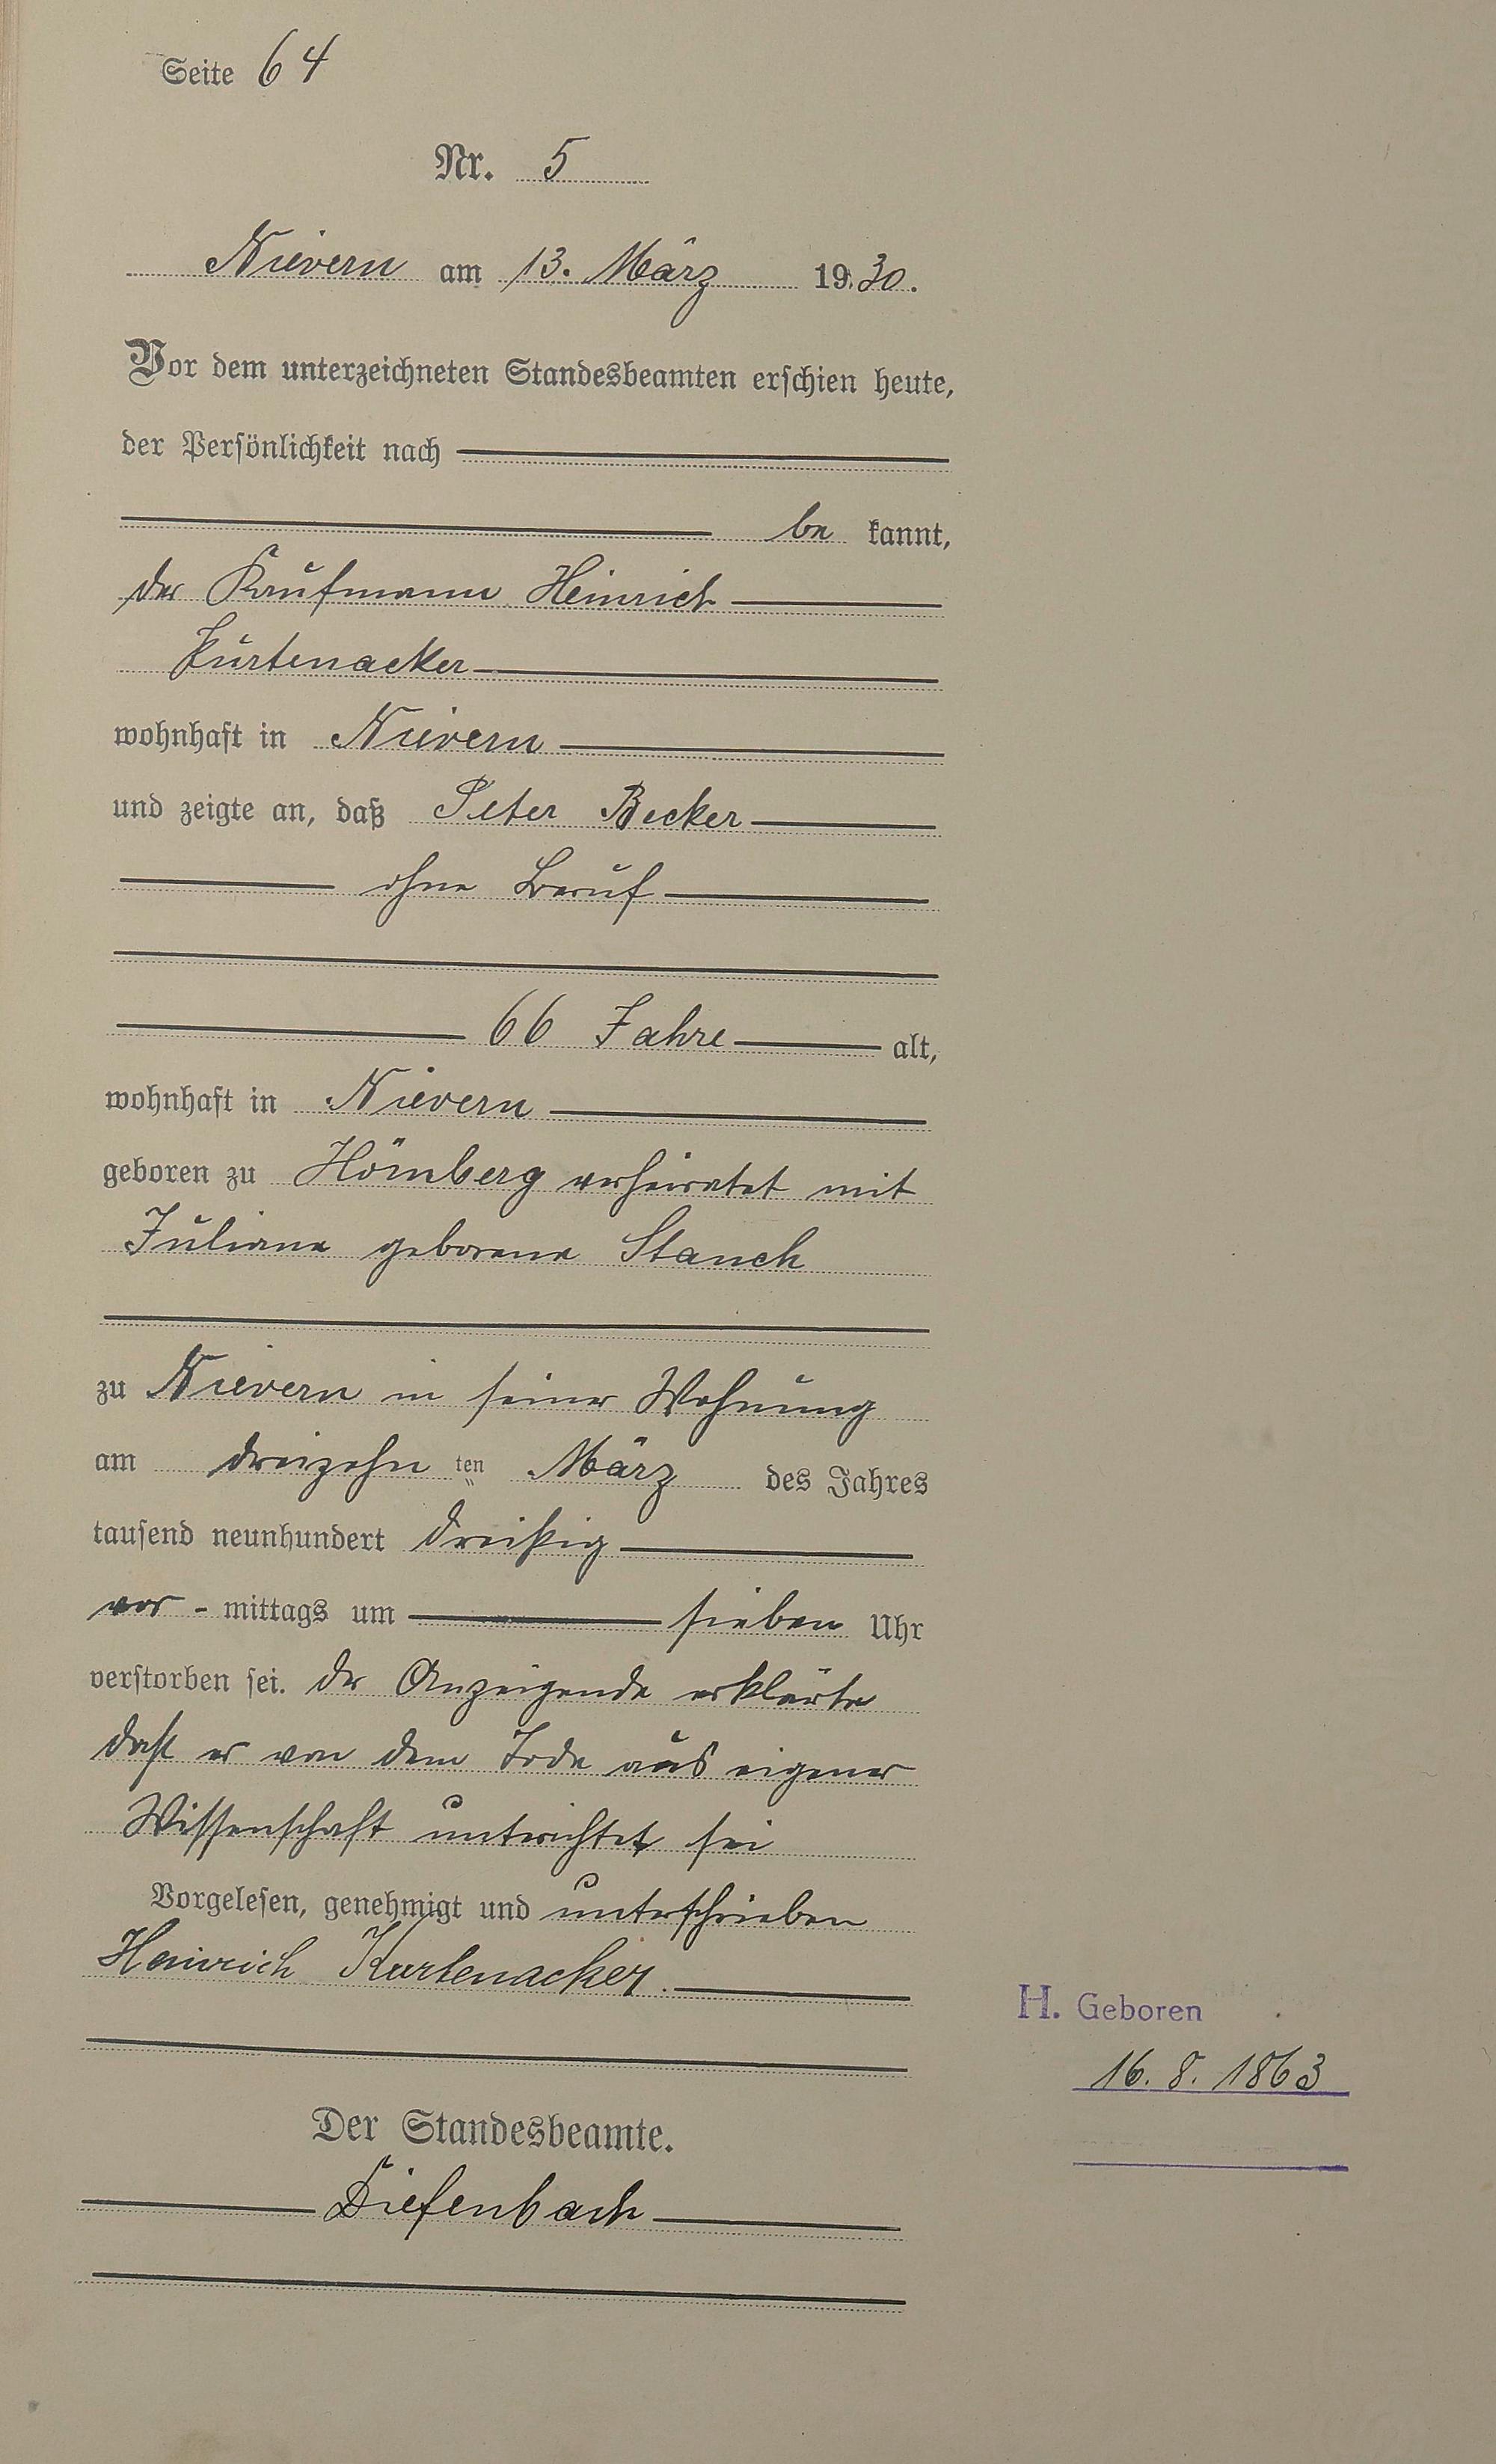 Seite 64
Nr. 5
Nievern am 13. März 1930.
Vor dem unterzeichneten Standesbeamten erschien heute,
der Persönlichkeit nach
be kannt,
der Kaufmann Heinrich
Kurtenacker
wohnhaft in Nievern
und zeigte an, daß Peter Becker
ohne Beruf
66 Jahre alt,
wohnhaft in Nievern
geboren zu Hömberg verheiratet mit
Juliane geborene Stanch
zu Nievern in seiner Wohnung
am dreizehn ten März des Jahres
tausend neunhundert dreißig
vor - mittags um sieben Uhr
verstorben sei. Der Anzeigende erklärte
daß er von dem Tode aus eigener
Wissenschaft unterichtet sei
Vorgelesen, genehmigt und unterschrieben
Heinrich Kurtenacker.
H. Geboren
16. 8. 1863
Der Standesbeamte.
Diefenbach